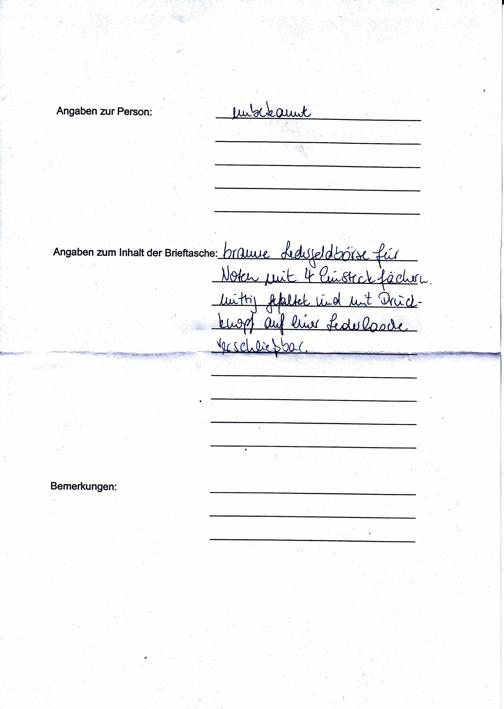 Angaben zur Person: unbekannt
Angaben zum Inhalt der Brieftasche: braune Ledergeldbörse für
Noten mit 4 Einsteckfächern.
mittig gefaltet und mit Druck-
knopf auf einer Lederlasche
verschließbar.
Bemerkungen: